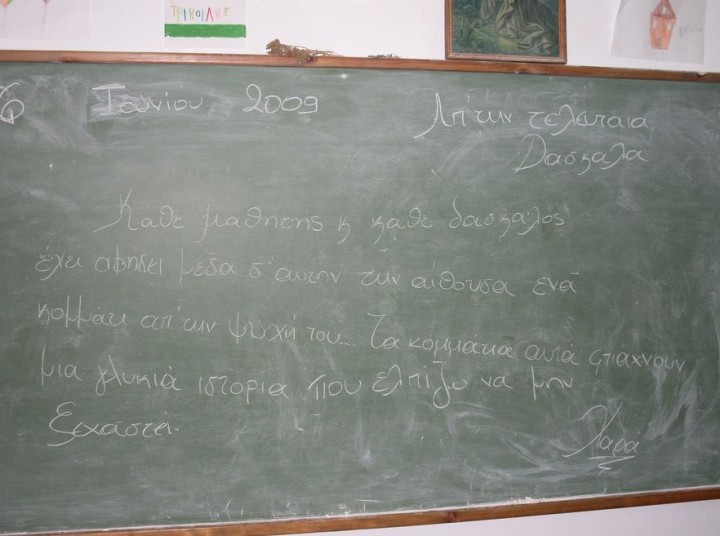 ΤΡΙΚΟΙΛΗΣ
Ιουνίου 2009
Απ' την τελευταια
Δασκαλα
Καθε μαθητης κ καθε δασκαλος
έχει αφησει μέσα σ' αυτην την αίθουσα ενα
κομμάτι απ' την ψυχή του... Τα κομματια αυτά φτιάχνουν
μια γλυκιά ιστορια που ελπίζω να μην
ξεχαστεί.
Χαρά